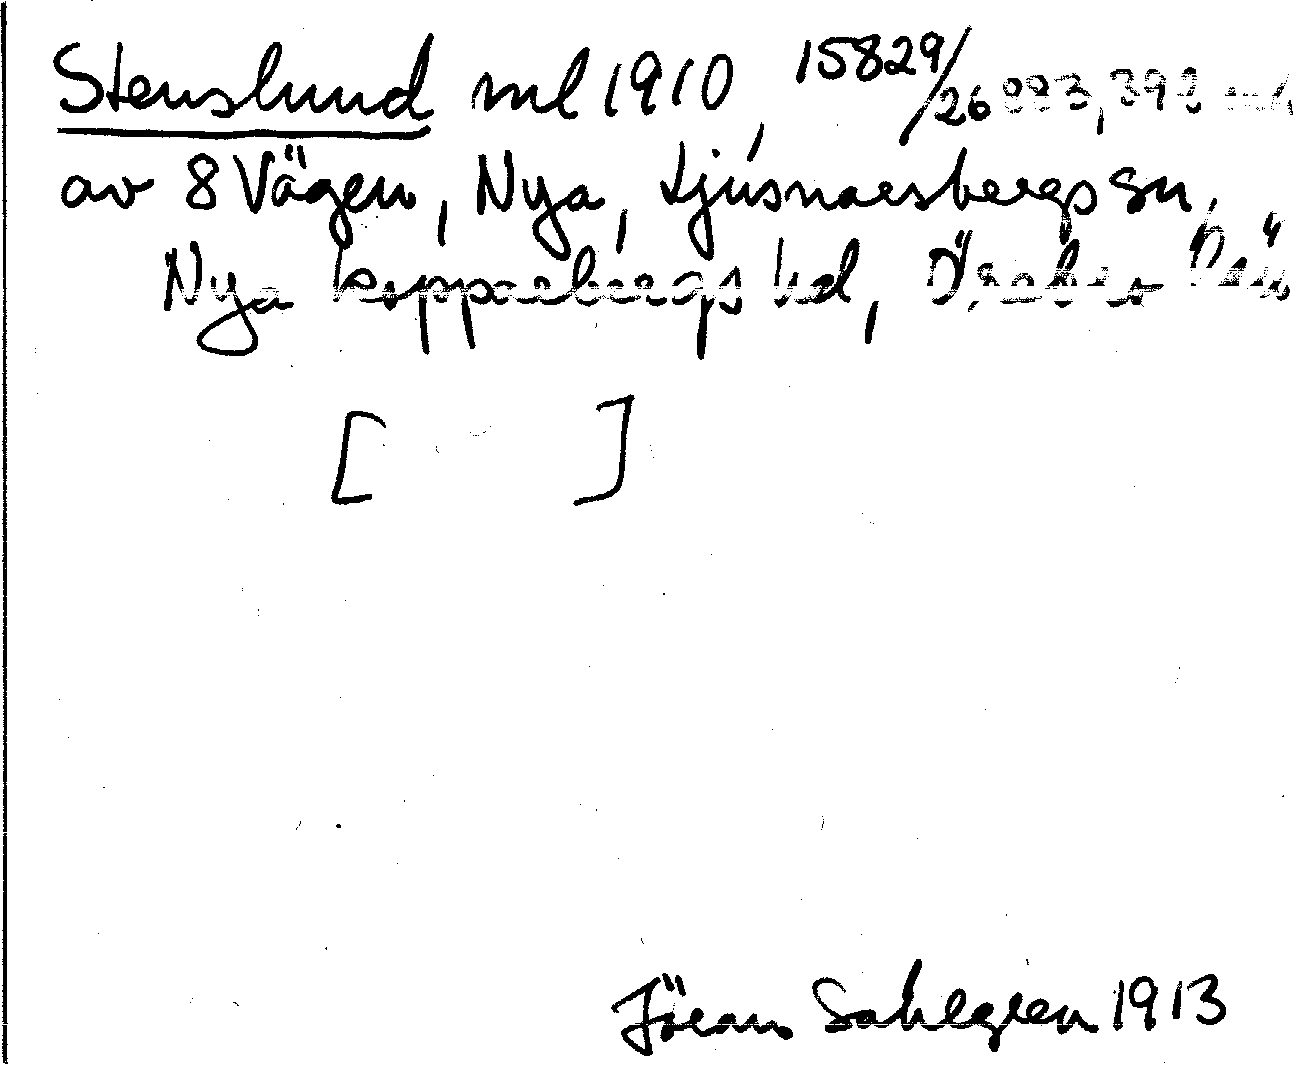 Stenslund ml 1910, 15829/26 893,398 
av 8 Vägen, Nya, Ljusnarsbergs sn,
Nya Kopparbergs hd, Örebro län
[ ]
Jöran Sahlgren 1913